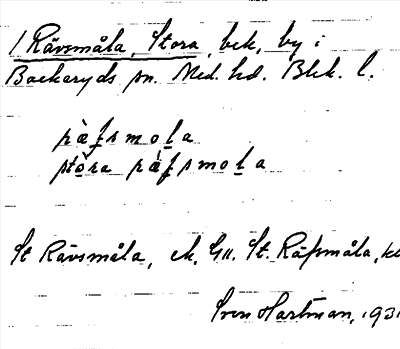 / Rävsmåla, Stora, bek, by i
Backaryds sn. Med. hd. Blek. l.
ræfsmola
stora ræfsmola
St Rävsmåla, ek, GK. St. Räfsmåla, k
Sven Hartman, 193